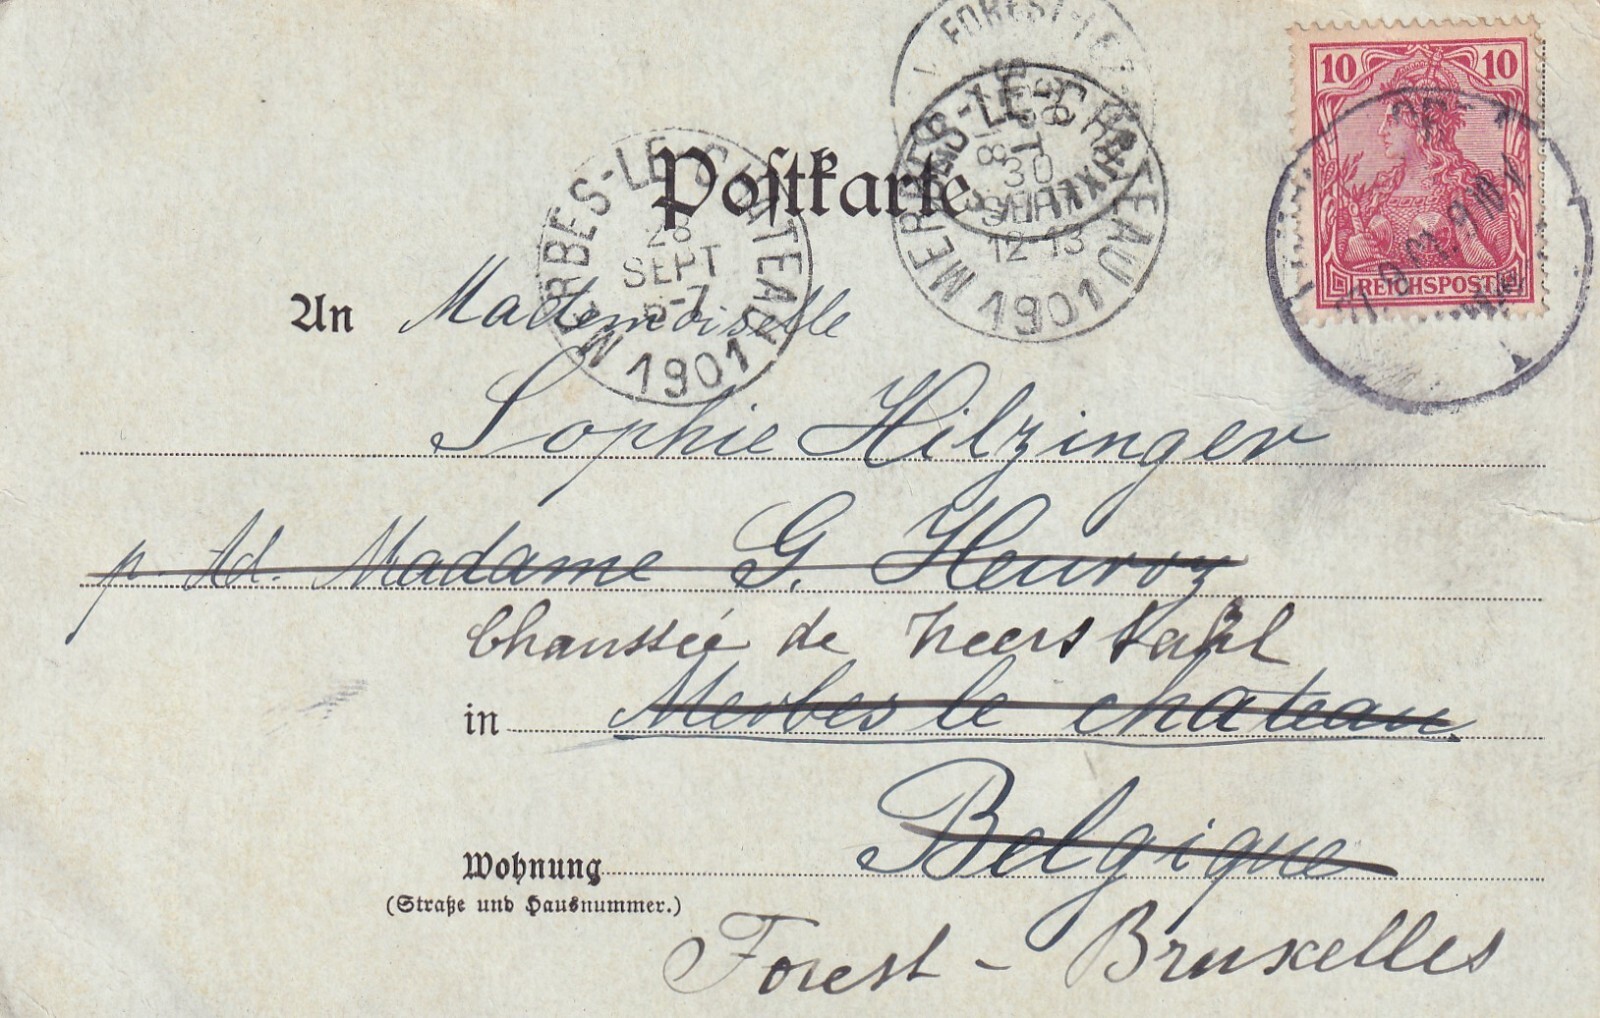 FOREST-LE
10 10
REICHSPOST
MERBES-LE-CHATEAU
SEPT
12-13
1901
Postkarte
MERBES-LE-CHATEAU
28
SEPT
6-7
1901
An Mademoiselle
Sophie Hilzinger
p. Ad. Madame G. Heuroz
Chaussée de
in Merbes le château
Belgique
Wohnung
(Straße und Hausnummer.)
Forest - Bruxelles